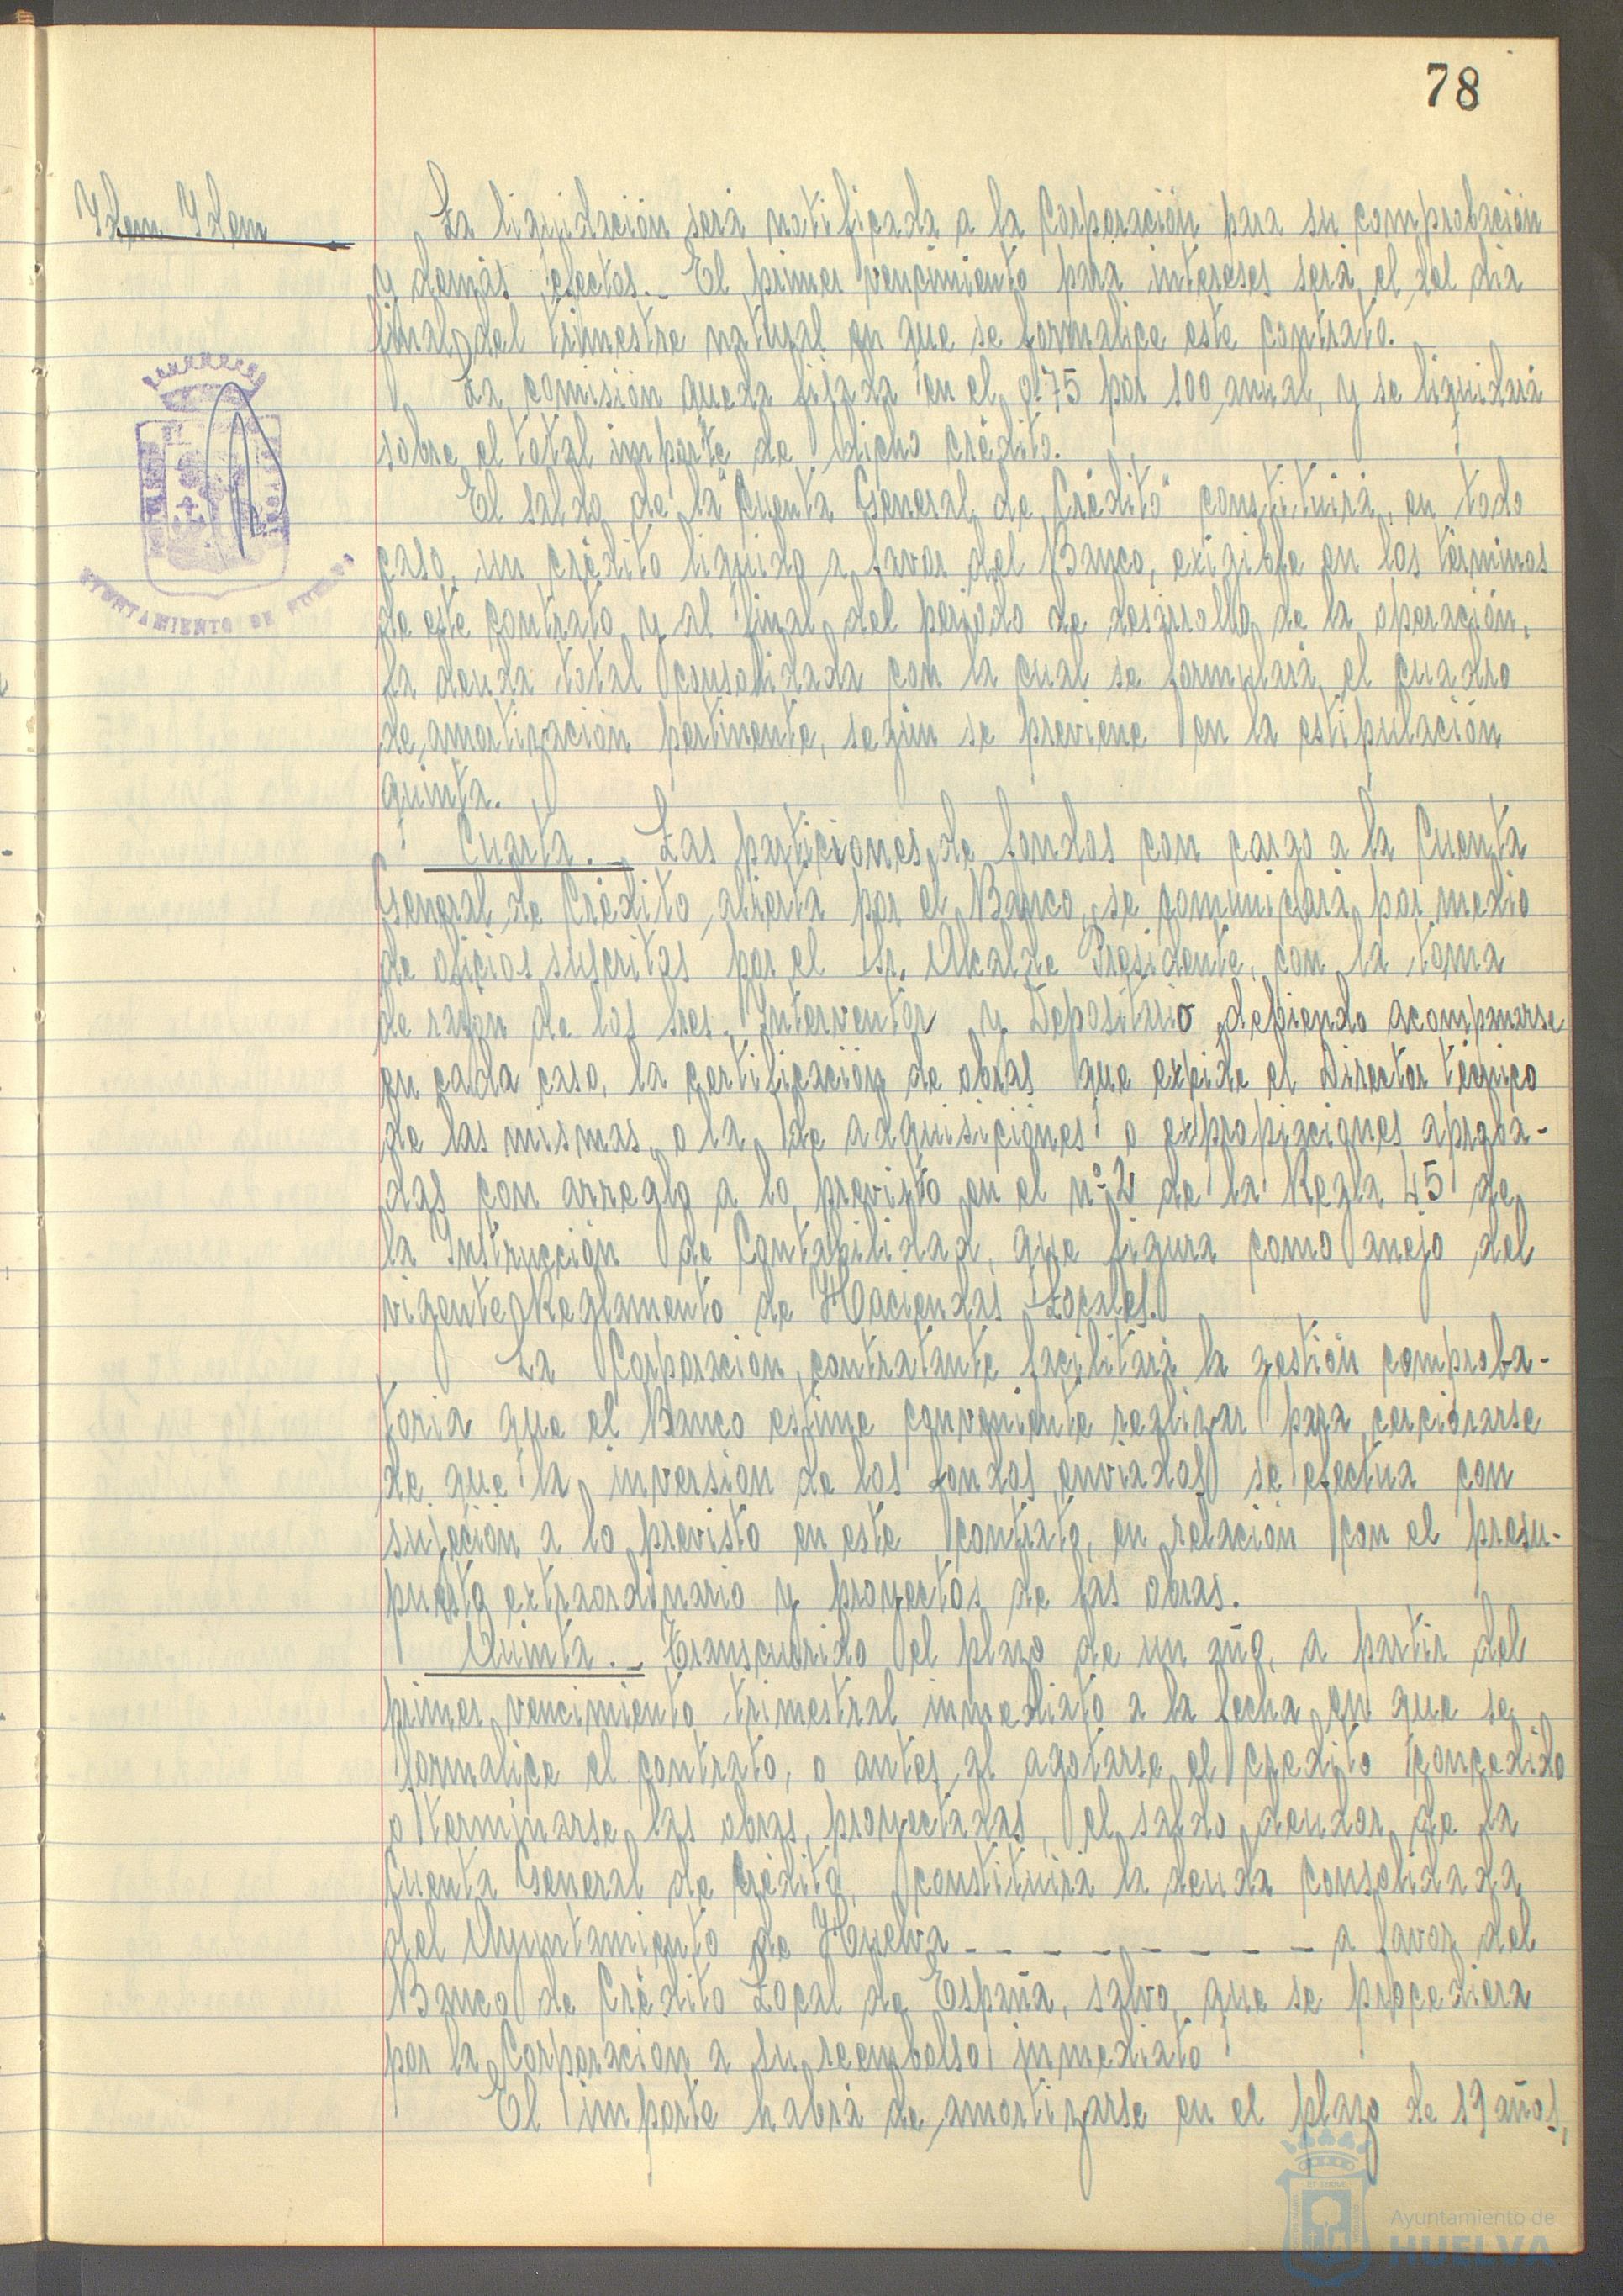 78
Idem Idem
La liquidación será notificada a la Corporación para su comprobación
y demás efectos.- El primer vencimiento para intereses será el del día
final del trimestre natural en que se formalice este contrato.
La comisión queda fijada en el 0'75 por 100 anual, y se liquidará
sobre el total importe de dicho crédito.
El saldo de la "Cuenta General de Crédito" constituirá, en todo
caso, un crédito líquido a favor del Banco, exigible en los términos
de este contrato y al final del período de desarrollo de la operación,
la deuda total consolidada con la cual se formulará el cuadro
de amortización pertinente, según se previene en la estipulación
quinta.
Cuarta.- Las particiones de fondos con cargo a la Cuenta
General de Crédito abierta por el Banco, se comunicará por medio
de oficios suscritos por el Sr. Alcalde Presidente, con la toma
de razón de los Sres. Interventor y Depositario debiendo acompañarse
en cada caso, la certificación de obras que expide el Director técnico
de las mismas, o la de adquisiciones o expropiaciones aproba-
das con arreglo a lo previsto en el nº 2 de la Regla 45 de
la Instrucción de Contabilidad, que figura como anejo del
vigente Reglamento de Haciendas Locales.
La Corporación contratante facilitará la gestión comproba-
toria que el Banco estime conveniente realizar para cerciorarse
de que la inversión de los fondos enviados se efectua con
sujeción a lo previsto en este contrato, en relación con el presu-
puesto extraordinario y proyectos de las obras.
Quinta.- Transcurrido el plazo de un año, a partir del
primer vencimiento trimestral inmediato a la fecha en que se
formalice el contrato, o antes al agotarse el crédito concedido
o terminarse las obras proyectadas, el saldo deudor de la
Cuenta General de Crédito, constituirá la deuda consolidada
del Ayuntamiento de Huelva - - - - - - - - - a favor del
Banco de Crédito Local de España, salvo que se procediera
por la Corporación a su reembolso inmediato
El importe habrá de amortizarse en el plazo de 19 años,
AYUNTAMIENTO DE HUELVA
Ayuntamiento de
HUELVA